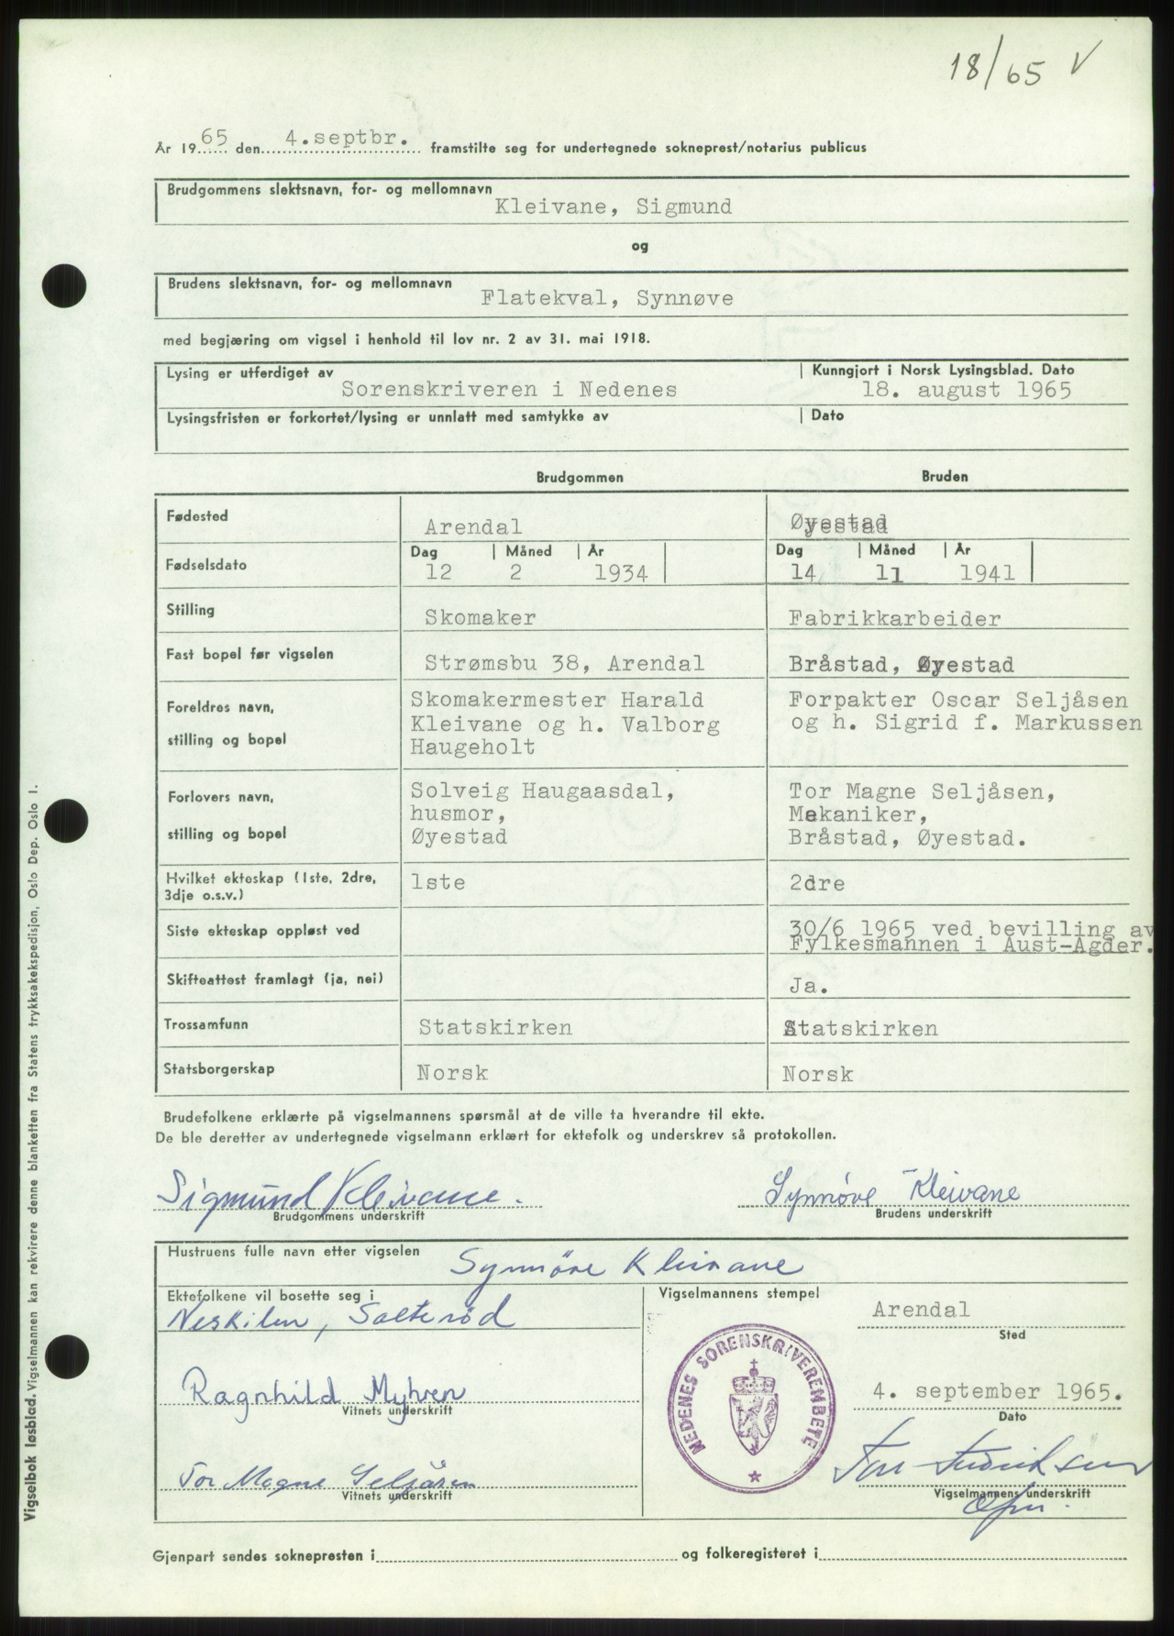 18/65 V
År 1965 den 4.septbr. framstilte seg for undertegnede sokneprest/notarius publicus
Brudgommens slektsnavn, for- og mellomnavn
Kleivane, Sigmund
og
Brudens slektsnavn, for- og mellomnavn
Flatekval, Synnøve
med begjæring om vigsel i henhold til lov nr. 2 av 31. mai 1918.
Lysing er utferdiget av | Kunngjort i Norsk Lysingsblad. Dato
Sorenskriveren i Nedenes 18. august 1965
Lysingsfristen er forkortet/lysing er unnlatt med samtykke av | Dato
Brudgommen Bruden
Fødested Arendal Øyestad
Fødselsdato Dag | Måned | År | Dag | Måned | År |
12 2 1934 14 11 1941
Stilling Skomaker Fabrikkarbeider
Fast bopel før vigselen Strømsbu 38, Arendal Bråstad, Øyestad
Foreldres navn, stilling og bopel
Skomakermester Harald
Kleivane og h. Valborg
Haugeholt
Forpakter Oscar Seljåsen
og h. Sigrid f. Markussen
Forlovers navn, stilling og bopel
Solveig Haugaasdal,
husmor,
Øyestad
Tor Magne Seljåsen,
Mekaniker,
Bråstad, Øyestad.
Hvilket ekteskap (1ste, 2dre,
3dje o.s.v.)
1ste 2dre
Siste ekteskap oppløst ved
30/6 1965 ved bevilling av
Fylkesmannen i Aust-Agder.
Skifteattest framlagt (ja, nei) Ja.
Trossamfunn Statskirken Statskirken
Statsborgerskap Norsk Norsk
Brudefolkene erklærte på vigselmannens spørsmål at de ville ta hverandre til ekte.
De ble deretter av undertegnede vigselmann erklært for ektefolk og underskrev så protokollen.
Sigmund Kleivane. Synnøve Kleivane
Brudgommens underskrift Brudens underskrift
Hustruens fulle navn etter vigselen Synnöve Kleivane
Ektefolkene vil bosette seg i
Neskilen, Salteröd
Vigselmannens stempel
Arendal
Sted
NEDENES SORENSKRIVEREMBETE
Ragnhild Myhren
Vitnets underskrift
4. september 1965.
Dato
Tor Magne Seljåsen
Vitnets underskrift
Vigselmannens underskrift
Gjenpart sendes soknepresten i og folkeregisteret i
Vigselbok løsblad. Vigselmannen kan rekvirere denne blanketten fra Statens trykksakekspedisjon, Oslo Dep. Oslo 1.